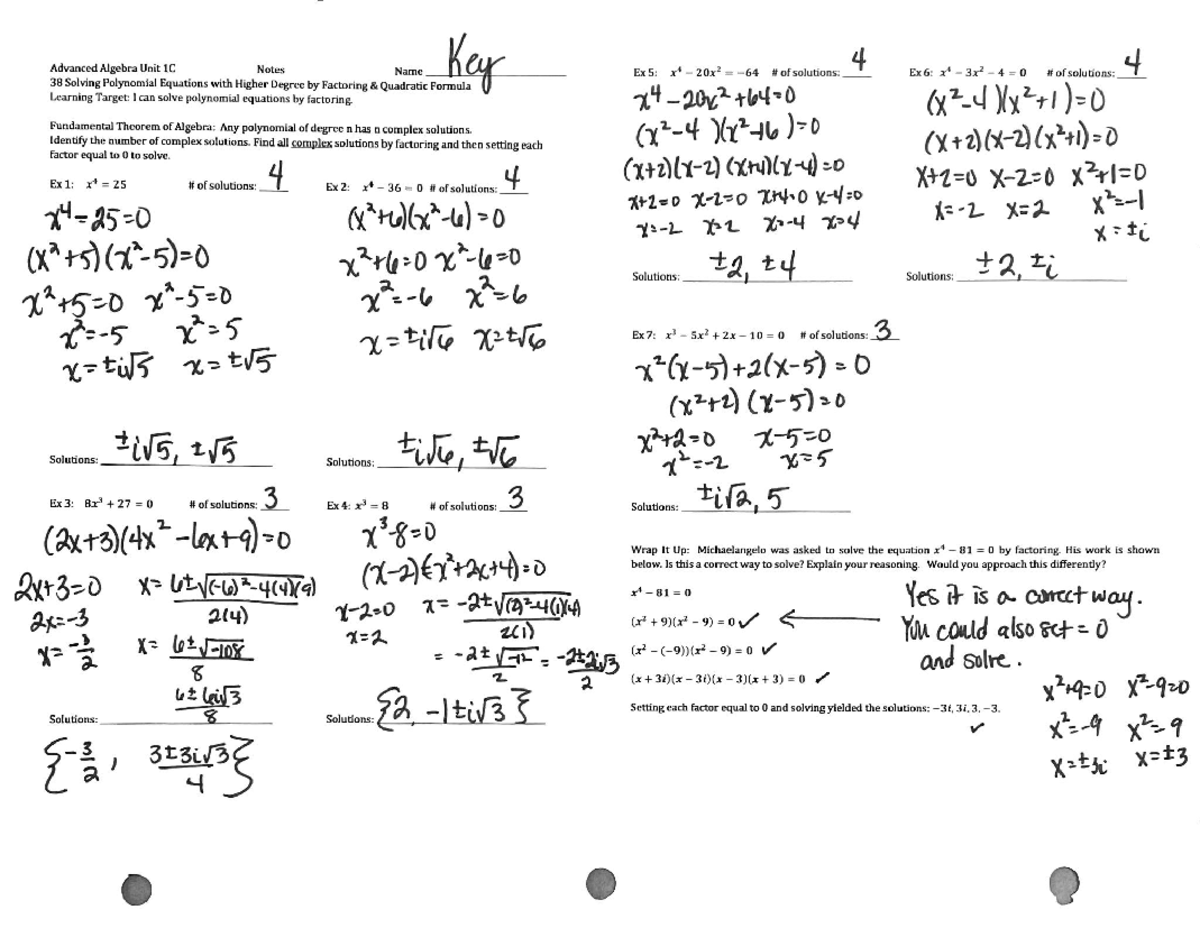 Advanced Algebra Unit 1C Notes Name Key
38 Solving Polynomial Equations with Higher Degree by Factoring & Quadratic Formula
Learning Target: I can solve polynomial equations by factoring.
Fundamental Theorem of Algebra: Any polynomial of degree n has n complex solutions.
Identify the number of complex solutions. Find all complex solutions by factoring and then setting each
factor equal to 0 to solve.
Ex 1: x⁴ = 25 # of solutions: 4
x⁴ - 25 = 0
(x² + 5)(x² - 5) = 0
x² + 5 = 0 x² - 5 = 0
x² = -5 x² = 5
x = ±i√5 x = ±√5
Solutions: ±i√5, ±√5
Ex 2: x⁴ – 36 = 0 # of solutions: 4
(x² + 6)(x² - 6) = 0
x² + 6 = 0 x² - 6 = 0
x² = -6 x² = 6
x = ±i√6 x = ±√6
Solutions: ±i√6, ±√6
Ex 3: 8x³ + 27 = 0 # of solutions: 3
(2x+3)(4x² - 6x + 9) = 0
2x+3=0 x = 6±√((-6)²-4(4)(9)) / 2(4)
2x = -3
x = -3/2 x = 6±√-108 / 8
6±6i√3 / 8
Solutions:
{-3/2, 3±3i√3 / 4}
Ex 4: x³ = 8 # of solutions: 3
x³ - 8 = 0
(x-2)(x²+2x+4) = 0
x-2=0 x = -2±√((2)²-4(1)(4)) / 2(1)
x = 2
= -2±√-12 / 2 = -2±2i√3 / 2
Solutions: {2, -1±i√3}
Ex 5: x⁴ – 20x² = –64 # of solutions: 4
x⁴ - 20x² + 64 = 0
(x² - 4)(x² - 16) = 0
(x+2)(x-2)(x+4)(x-4) = 0
x+2=0 x-2=0 x+4=0 x-4=0
x=-2 x=2 x=-4 x=4
Solutions: ±2, ±4
Ex 6: x⁴ – 3x² – 4 = 0 # of solutions: 4
(x² - 4)(x² + 1) = 0
(x+2)(x-2)(x²+1) = 0
x+2=0 x-2=0 x²+1=0
x=-2 x=2 x²=-1
x = ±i
Solutions: ±2, ±i
Ex 7: x³ – 5x² + 2x – 10 = 0 # of solutions: 3
x²(x-5)+2(x-5) = 0
(x²+2)(x-5) = 0
x²+2=0 x-5=0
x²=-2 x=5
Solutions: ±i√2, 5
Wrap It Up: Michaelangelo was asked to solve the equation x⁴ – 81 = 0 by factoring. His work is shown
below. Is this a correct way to solve? Explain your reasoning. Would you approach this differently?
x⁴ – 81 = 0
(x² + 9)(x² – 9) = 0 ✓
(x² – (–9))(x² – 9) = 0 ✓
(x + 3i)(x – 3i)(x – 3)(x + 3) = 0 ✓
Setting each factor equal to 0 and solving yielded the solutions: –3i, 3i, 3, –3.
✓
Yes it is a correct way.
You could also set = 0
and solve.
x²+9=0 x²-9=0
x²=-9 x²=9
x=±3i x=±3